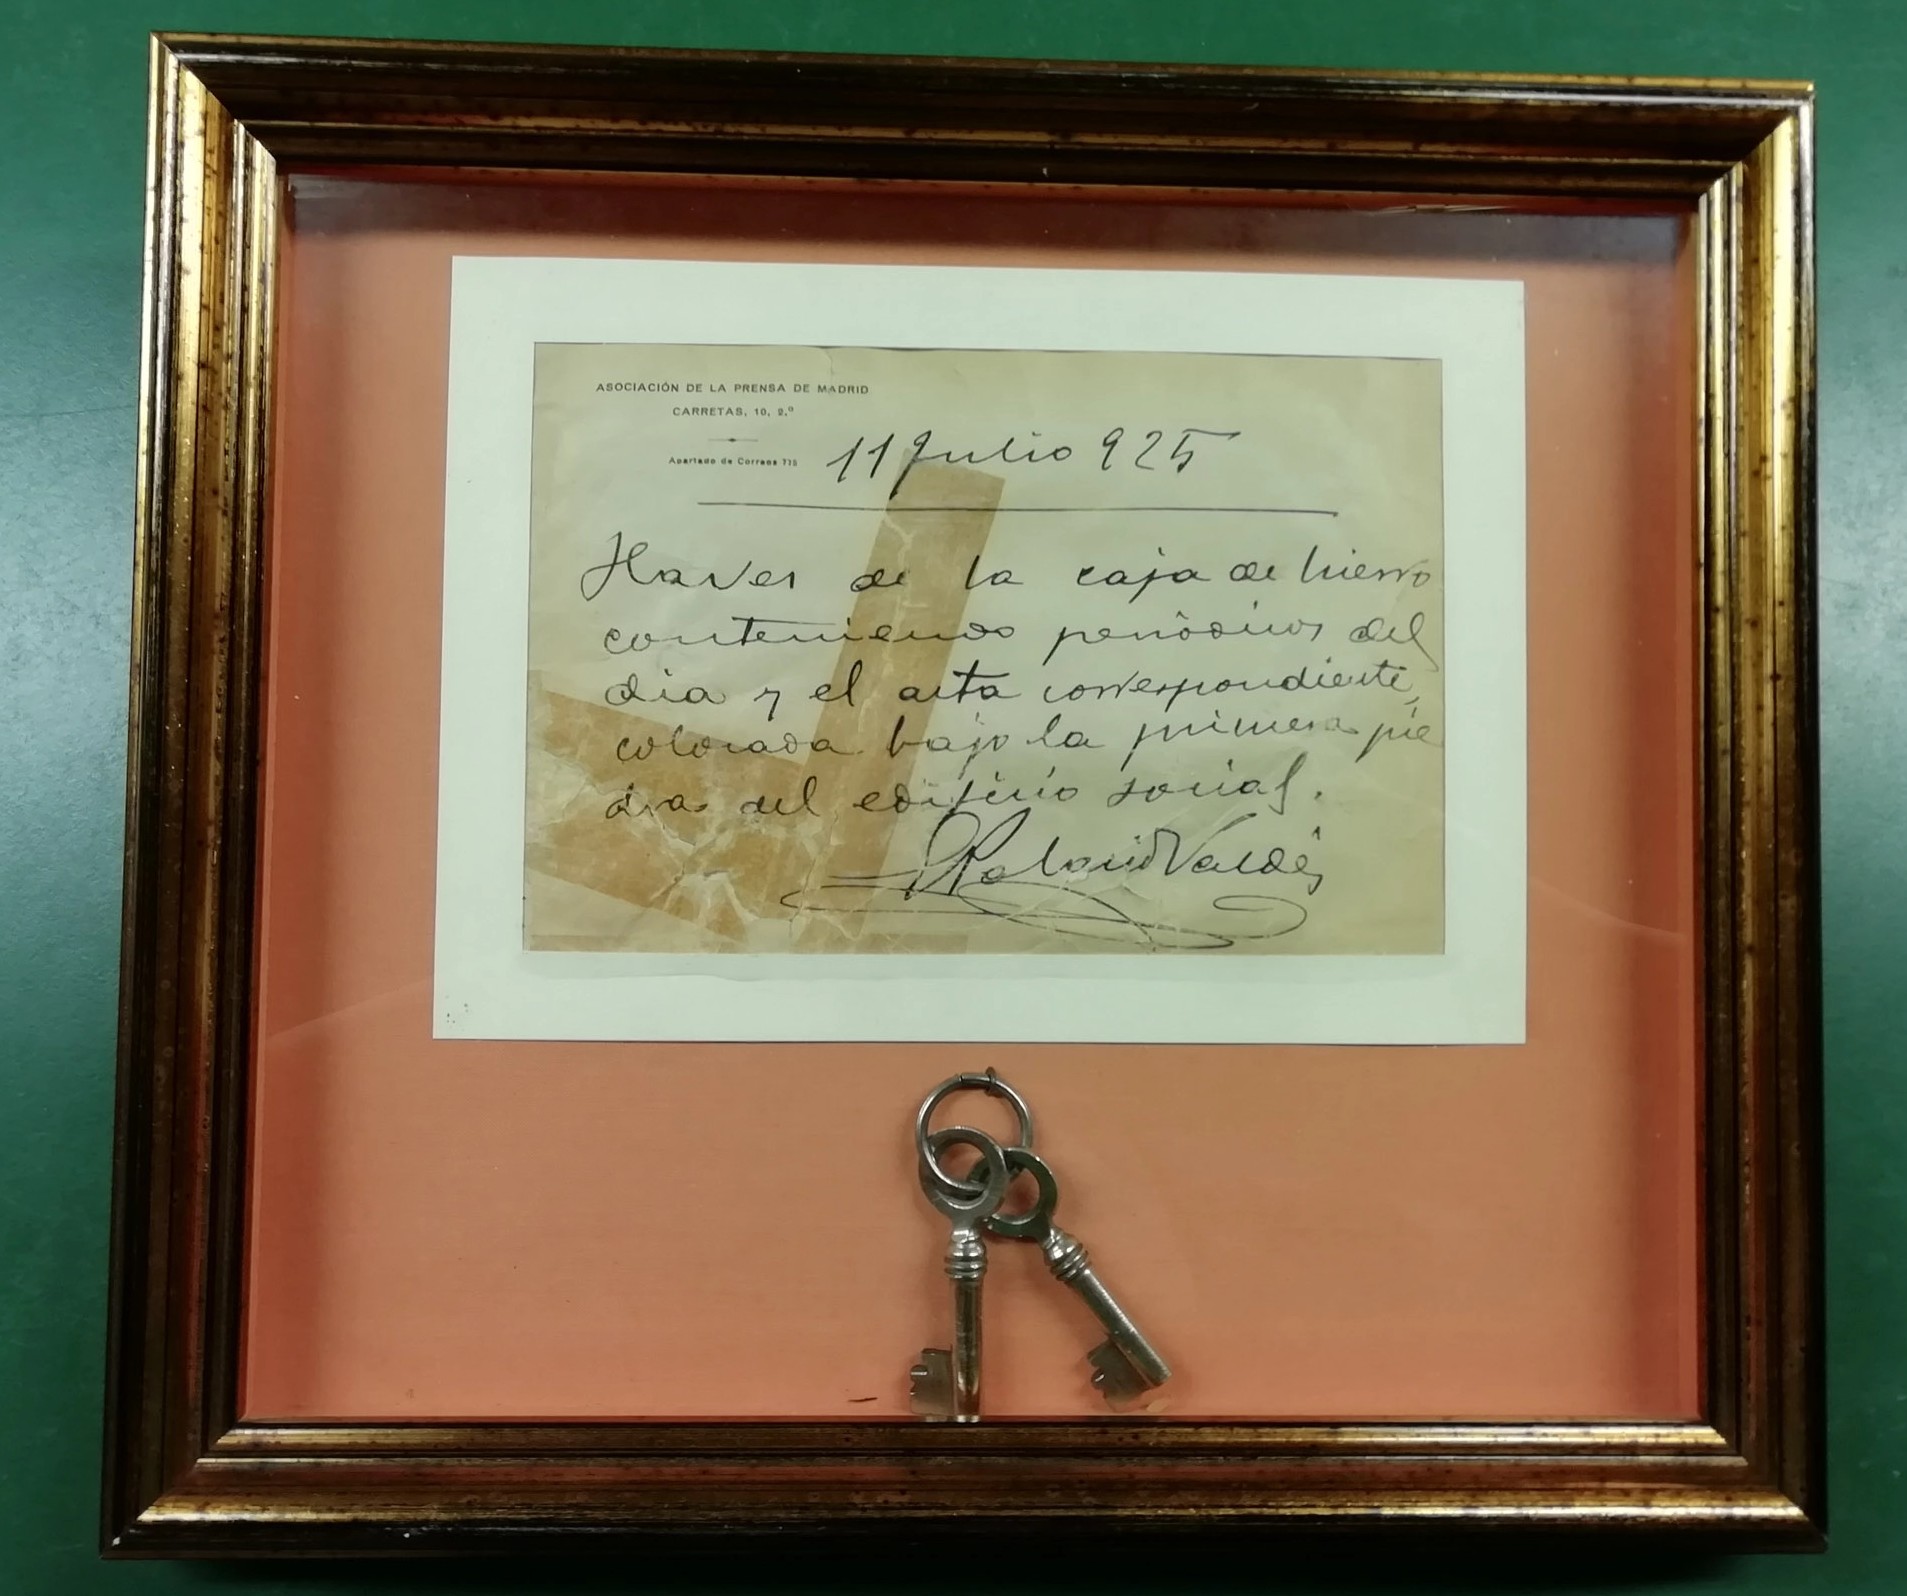 ASOCIACIÓN DE LA PRENSA DE MADRID
CARRETAS, 10, 2.º
Apartado de Correos 775
11 Julio 925
Llaves de la caja de hierro
conteniendo periódicos del
día y el acta correspondiente,
colocada bajo la primera pie
dra del edificio social.
Palacio Valdés